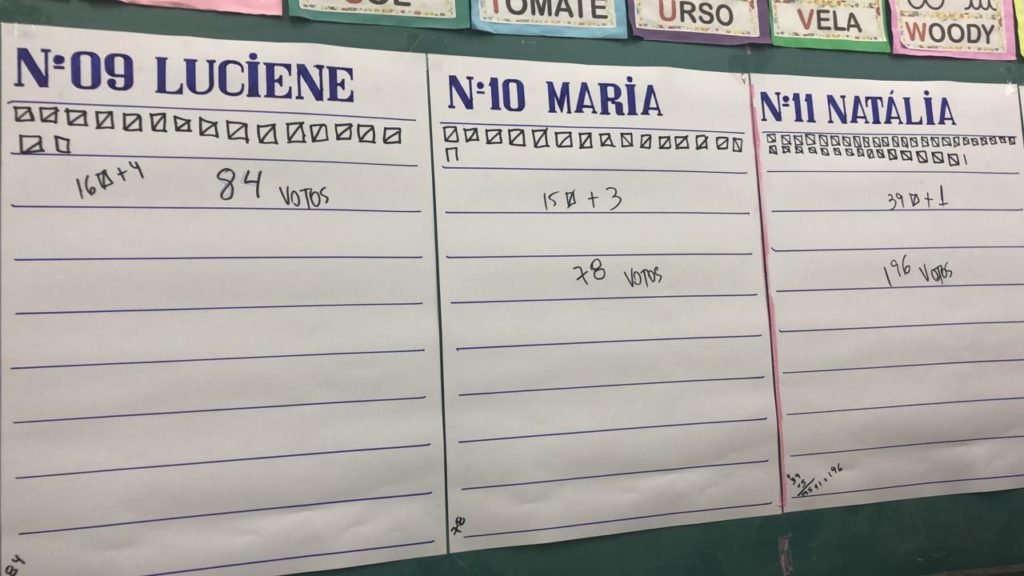 TOMATE
URSO
VELA
WOODY
Nº09 LUCIENE
16 + 4
84 VOTOS
84
Nº10 MARIA
15 + 3
78 VOTOS
78
Nº11 NATÁLIA
39 + 1
196 VOTOS
39
+1 = 196